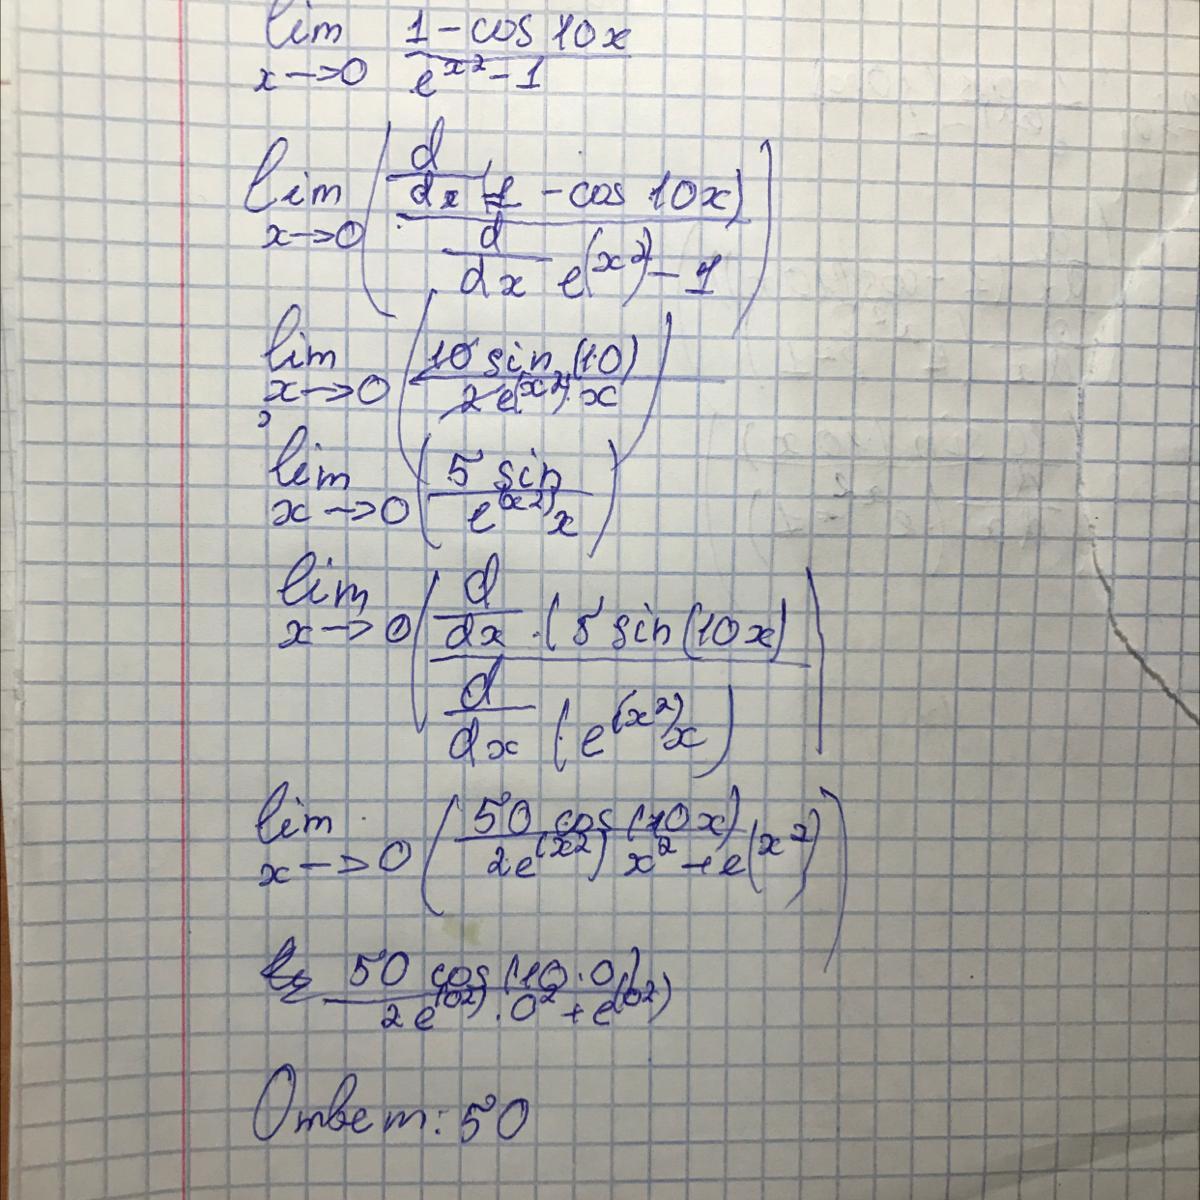 lim 1 - cos 10x
x → 0 e^x² - 1
lim ( d
dx (1 - cos 10x)
x → 0 d
dx e^(x²) - 1 )
lim ( 10 sin (10)
x → 0 2e^(x²) x )
lim ( 5 sin
x → 0 e^(x²) x )
lim ( d
x → 0 dx · ( 5 sin (10x)
d
dx ( e^(x²) x ) )
lim ( 50 cos (10x)
x → 0 2e^(x²) x² + e^(x²) )
50 cos (10 · 0)
2e^(0²) · 0² + e^(0²)
Ответ: 50